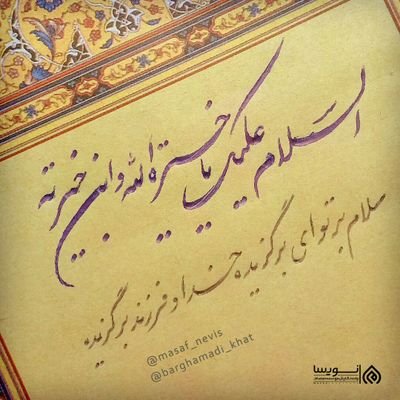 السلام علیک یا خیرة الله وابن خیرته
سلام بر تو ای برگزیده خدا و فرزند برگزیده
@masaf_nevis
@barghamadi_khat
نویسا